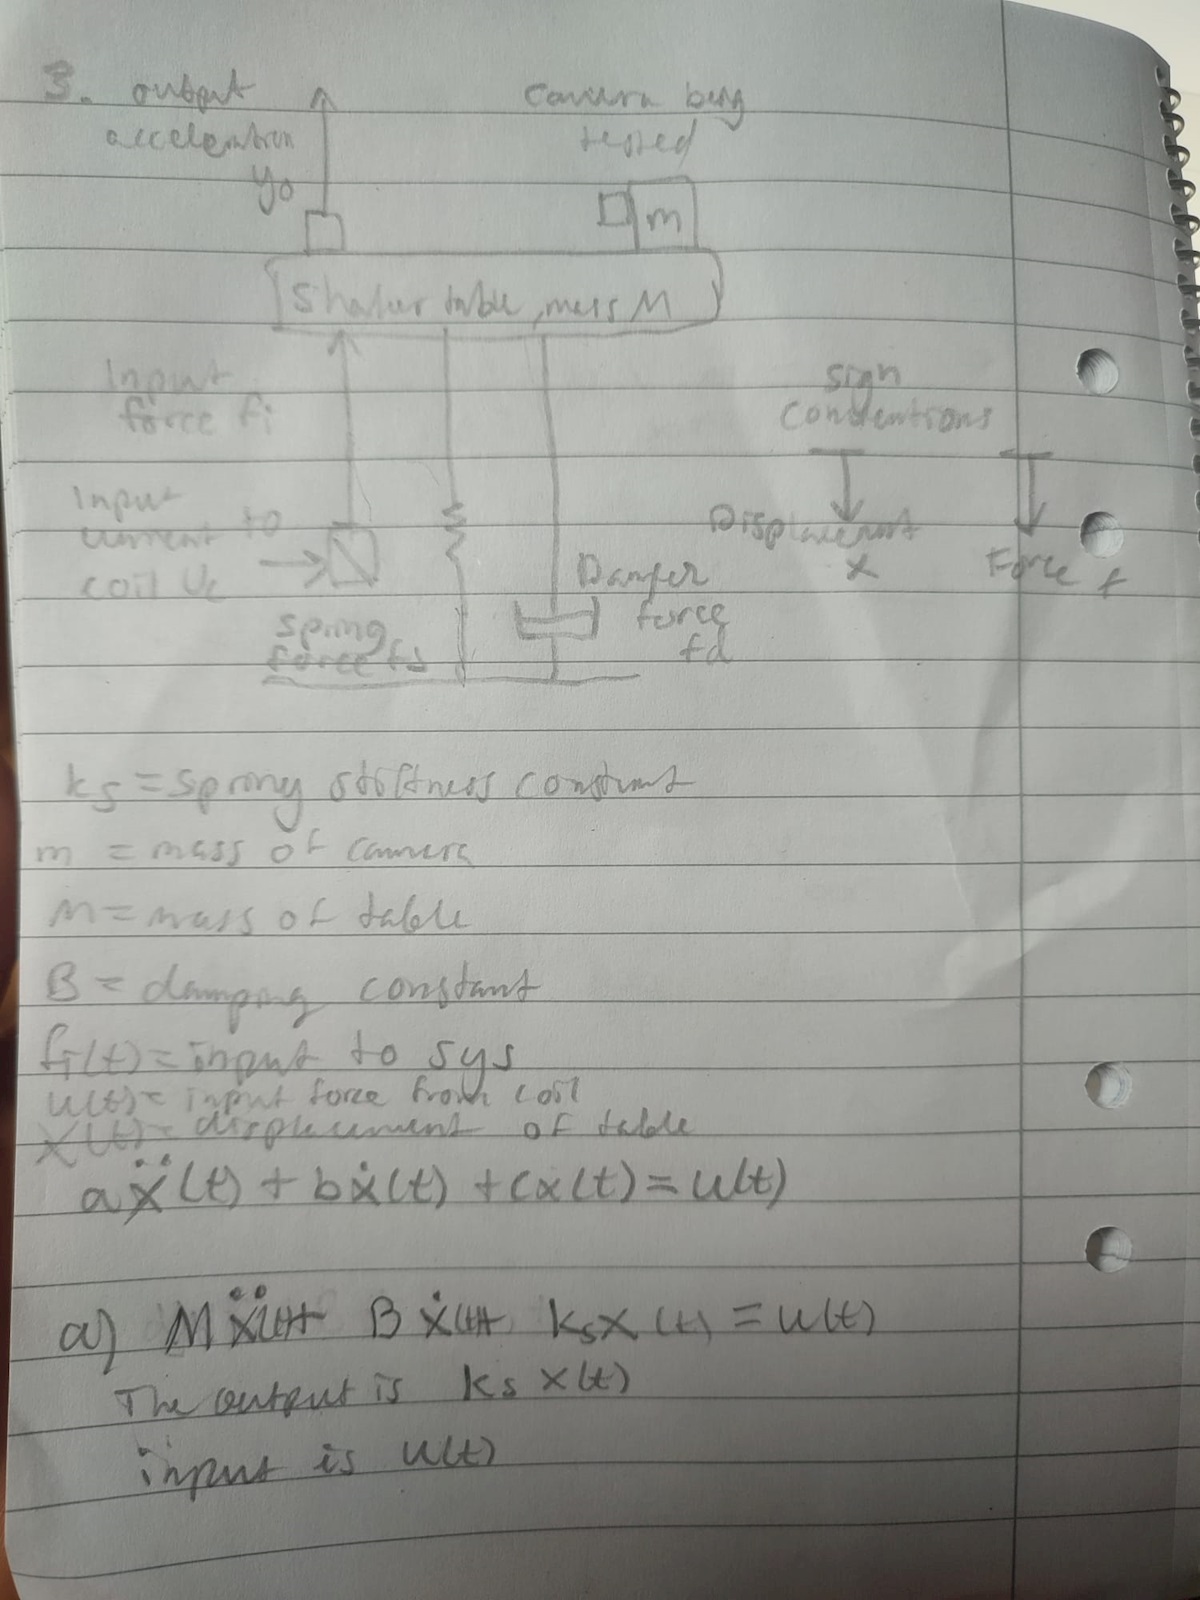 3. output
acceleration
yo
camera being
tested
m
Shaker table, mass M
Input
force fi
Input
current to
coil Uc
spring
force fs
Damper
force
fd
sign
conventions
Displacement
x
Force f
ks = spring stiffness constant
m = mass of camera
M = mass of table
B = damping constant
fi(t) = input to sys
u(t) = input force from coil
x(t) = displacement of table
aẍ(t) + bẋ(t) + cx(t) = u(t)
a) Mẍ(t)+ Bẋ(t)+ ksx(t) = u(t)
The output is ks x(t)
input is u(t)